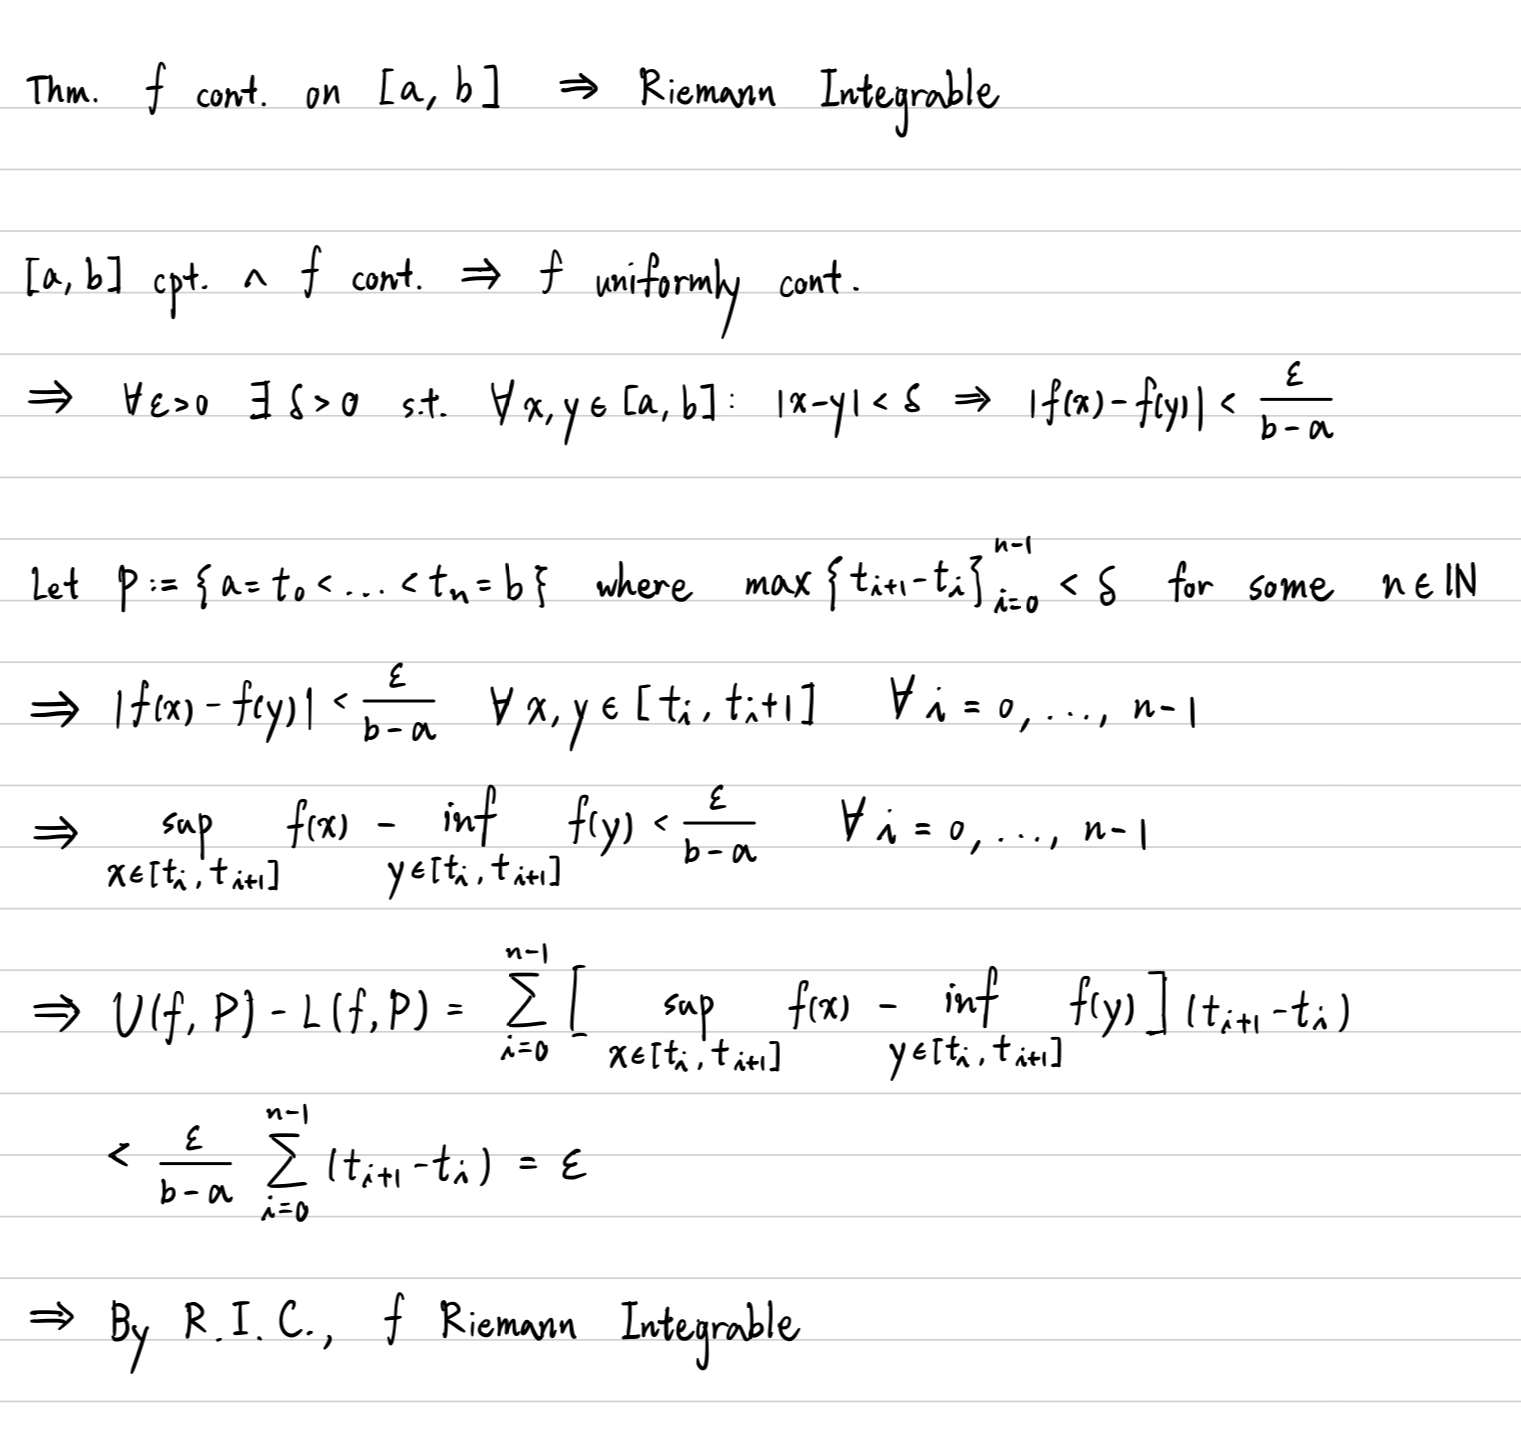 Thm. f cont. on [a, b] ⇒ Riemann Integrable
[a, b] cpt. ∧ f cont. ⇒ f uniformly cont.
⇒ ∀ε>0 ∃ δ>0 s.t. ∀x, y ∈ [a, b]: |x-y| < δ ⇒ |f(x) - f(y)| < ε/(b-a)
Let P := {a = t₀ < ... < tₙ = b} where max{tᵢ₊₁ - tᵢ}ᵢ₌₀ⁿ⁻¹ < δ for some n ∈ ℕ
⇒ |f(x) - f(y)| < ε/(b-a) ∀ x, y ∈ [tᵢ, tᵢ+1] ∀ i = 0, ..., n-1
⇒ sup_{x∈[tᵢ, tᵢ₊₁]} f(x) - inf_{y∈[tᵢ, tᵢ₊₁]} f(y) < ε/(b-a) ∀ i = 0, ..., n-1
⇒ U(f, P) - L(f, P) = ∑_{i=0}^{n-1} [ sup_{x∈[tᵢ, tᵢ₊₁]} f(x) - inf_{y∈[tᵢ, tᵢ₊₁]} f(y) ] (tᵢ₊₁ - tᵢ)
< ε/(b-a) ∑_{i=0}^{n-1} (tᵢ₊₁ - tᵢ) = ε
⇒ By R.I.C., f Riemann Integrable